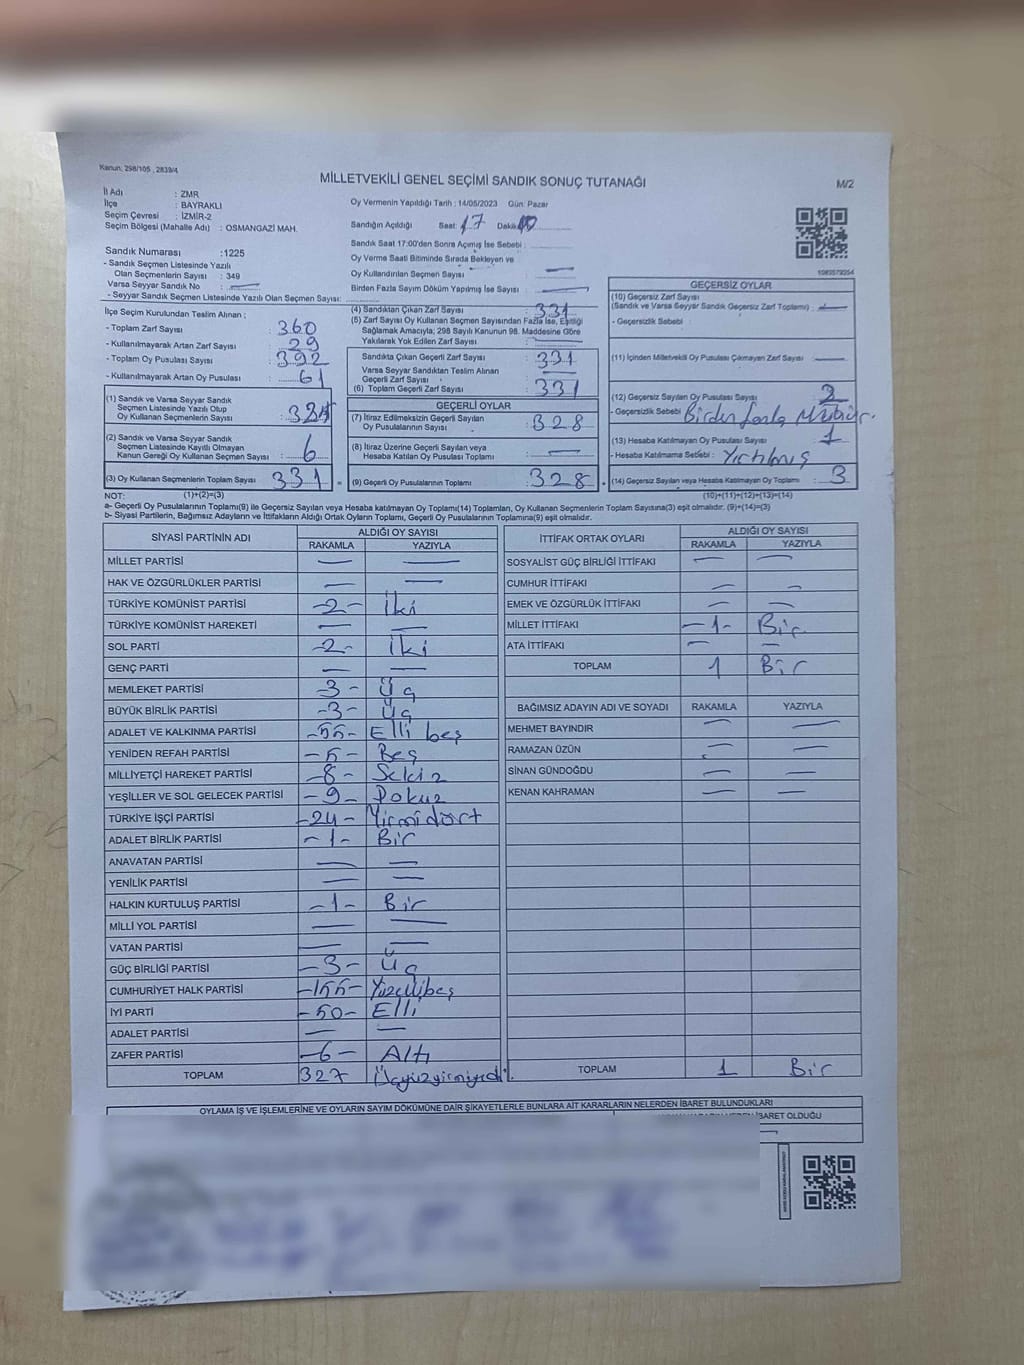 Kanun; 298/105 , 2839/4
MİLLETVEKİLİ GENEL SEÇİMİ SANDIK SONUÇ TUTANAĞI
M/2
İl Adı : ZMR
İlçe : BAYRAKLI
Seçim Çevresi : İZMİR-2
Seçim Bölgesi (Mahalle Adı) : OSMANGAZİ MAH.
Sandık Numarası :1225
- Sandık Seçmen Listesinde Yazılı
Olan Seçmenlerin Sayısı : 349
Varsa Seyyar Sandık No :
- Seyyar Sandık Seçmen Listesinde Yazılı Olan Seçmen Sayısı:
İlçe Seçim Kurulundan Teslim Alınan ;
- Toplam Zarf Sayısı : 360
- Kullanılmayarak Artan Zarf Sayısı : 29
- Toplam Oy Pusulası Sayısı : 392
- Kullanılmayarak Artan Oy Pusulası : 61
(1) Sandık ve Varsa Seyyar Sandık
Seçmen Listesinde Yazılı Olup
Oy Kullanan Seçmenlerin Sayısı :
(2) Sandık ve Varsa Seyyar Sandık
Seçmen Listesinde Kayıtlı Olmayan
Kanun Gereği Oy Kullanan Seçmen Sayısı : 6
(3) Oy Kullanan Seçmenlerin Toplam Sayısı : 331 =
Oy Vermenin Yapıldığı Tarih : 14/05/2023 Gün: Pazar
Sandığın Açıldığı Saat: 17 Dakika:
Sandık Saat 17:00'den Sonra Açımış İse Sebebi :
Oy Verme Saati Bitiminde Sırada Bekleyen ve
Oy Kullandırılan Seçmen Sayısı : —
Birden Fazla Sayım Döküm Yapılmış İse Sayısı : —
(4) Sandıktan Çıkan Zarf Sayısı : 331
(5) Zarf Sayısı Oy Kullanan Seçmen Sayısından Fazla İse, Eşitliği
Sağlamak Amacıyla; 298 Sayılı Kanunun 98. Maddesine Göre
Yakılarak Yok Edilen Zarf Sayısı : —
Sandıkta Çıkan Geçerli Zarf Sayısı : 331
Varsa Seyyar Sandıktan Teslim Alınan
Geçerli Zarf Sayısı : —
(6) Toplam Geçerli Zarf Sayısı : 331
GEÇERLİ OYLAR
(7) İtiraz Edilmeksizin Geçerli Sayılan
Oy Pusulalarının Sayısı : 328
(8) İtiraz Üzerine Geçerli Sayılan veya
Hesaba Katılan Oy Pusulası Toplamı : —
(9) Geçerli Oy Pusulalarının Toplamı : 328 +
GEÇERSİZ OYLAR
(10) Geçersiz Zarf Sayısı
(Sandık ve Varsa Seyyar Sandık Geçersiz Zarf Toplamı) : —
- Geçersizlik Sebebi :
(11) İçinden Milletvekili Oy Pusulası Çıkmayan Zarf Sayısı : —
(12) Geçersiz Sayılan Oy Pusulası Sayısı : 2
- Geçersizlik Sebebi : Birden fazla Mühür.
(13) Hesaba Katılmayan Oy Pusulası Sayısı : 1
- Hesaba Katılmama Sebebi : Yırtılmış
(14) Geçersiz Sayılan veya Hesaba Katılmayan Oy Toplamı : 3
NOT: (1)+(2)=(3) (10)+(11)+(12)+(13)=(14)
a- Geçerli Oy Pusulalarının Toplamı(9) ile Geçersiz Sayılan veya Hesaba Katılmayan Oy Toplamı(14) Toplamları, Oy Kullanan Seçmenlerin Toplam Sayısına(3) eşit olmalıdır. (9)+(14)=(3)
b- Siyasi Partilerin, Bağımsız Adayların ve İttifakların Aldığı Ortak Oyların Toplamı, Geçerli Oy Pusulalarının Toplamına(9) eşit olmalıdır.
SİYASİ PARTİNİN ADI ALDIĞI OY SAYISI
RAKAMLA YAZIYLA
MİLLET PARTİSİ — —
HAK VE ÖZGÜRLÜKLER PARTİSİ — —
TÜRKİYE KOMÜNİST PARTİSİ -2- İki
TÜRKİYE KOMÜNİST HAREKETİ — —
SOL PARTİ -2- İki
GENÇ PARTİ — —
MEMLEKET PARTİSİ -3- Üç
BÜYÜK BİRLİK PARTİSİ -3- Üç
ADALET VE KALKINMA PARTİSİ -55- Elli beş
YENİDEN REFAH PARTİSİ -5- Beş
MİLLİYETÇİ HAREKET PARTİSİ -8- Sekiz
YEŞİLLER VE SOL GELECEK PARTİSİ -9- Dokuz
TÜRKİYE İŞÇİ PARTİSİ -24- Yirmidört
ADALET BİRLİK PARTİSİ -1- Bir
ANAVATAN PARTİSİ — —
YENİLİK PARTİSİ — —
HALKIN KURTULUŞ PARTİSİ -1- Bir
MİLLİ YOL PARTİSİ — —
VATAN PARTİSİ — —
GÜÇ BİRLİĞİ PARTİSİ -3- Üç
CUMHURİYET HALK PARTİSİ -155- Yüzellibeş
İYİ PARTİ -50- Elli
ADALET PARTİSİ — —
ZAFER PARTİSİ -6- Altı
TOPLAM 327 Üçyüzyirmiyedi.
İTTİFAK ORTAK OYLARI ALDIĞI OY SAYISI
RAKAMLA YAZIYLA
SOSYALİST GÜÇ BİRLİĞİ İTTİFAKI — —
CUMHUR İTTİFAKI — —
EMEK VE ÖZGÜRLÜK İTTİFAKI — —
MİLLET İTTİFAKI -1- Bir
ATA İTTİFAKI — —
TOPLAM 1 Bir
BAĞIMSIZ ADAYIN ADI VE SOYADI RAKAMLA YAZIYLA
MEHMET BAYINDIR — —
RAMAZAN ÜZÜN — —
SİNAN GÜNDOĞDU — —
KENAN KAHRAMAN — —
TOPLAM 1 Bir
OYLAMA İŞ VE İŞLEMLERİNE VE OYLARIN SAYIM DÖKÜMÜNE DAİR ŞİKAYETLERLE BUNLARA AİT KARARLARIN NELERDEN İBARET BULUNDUKLARI
İBARET OLDUĞU